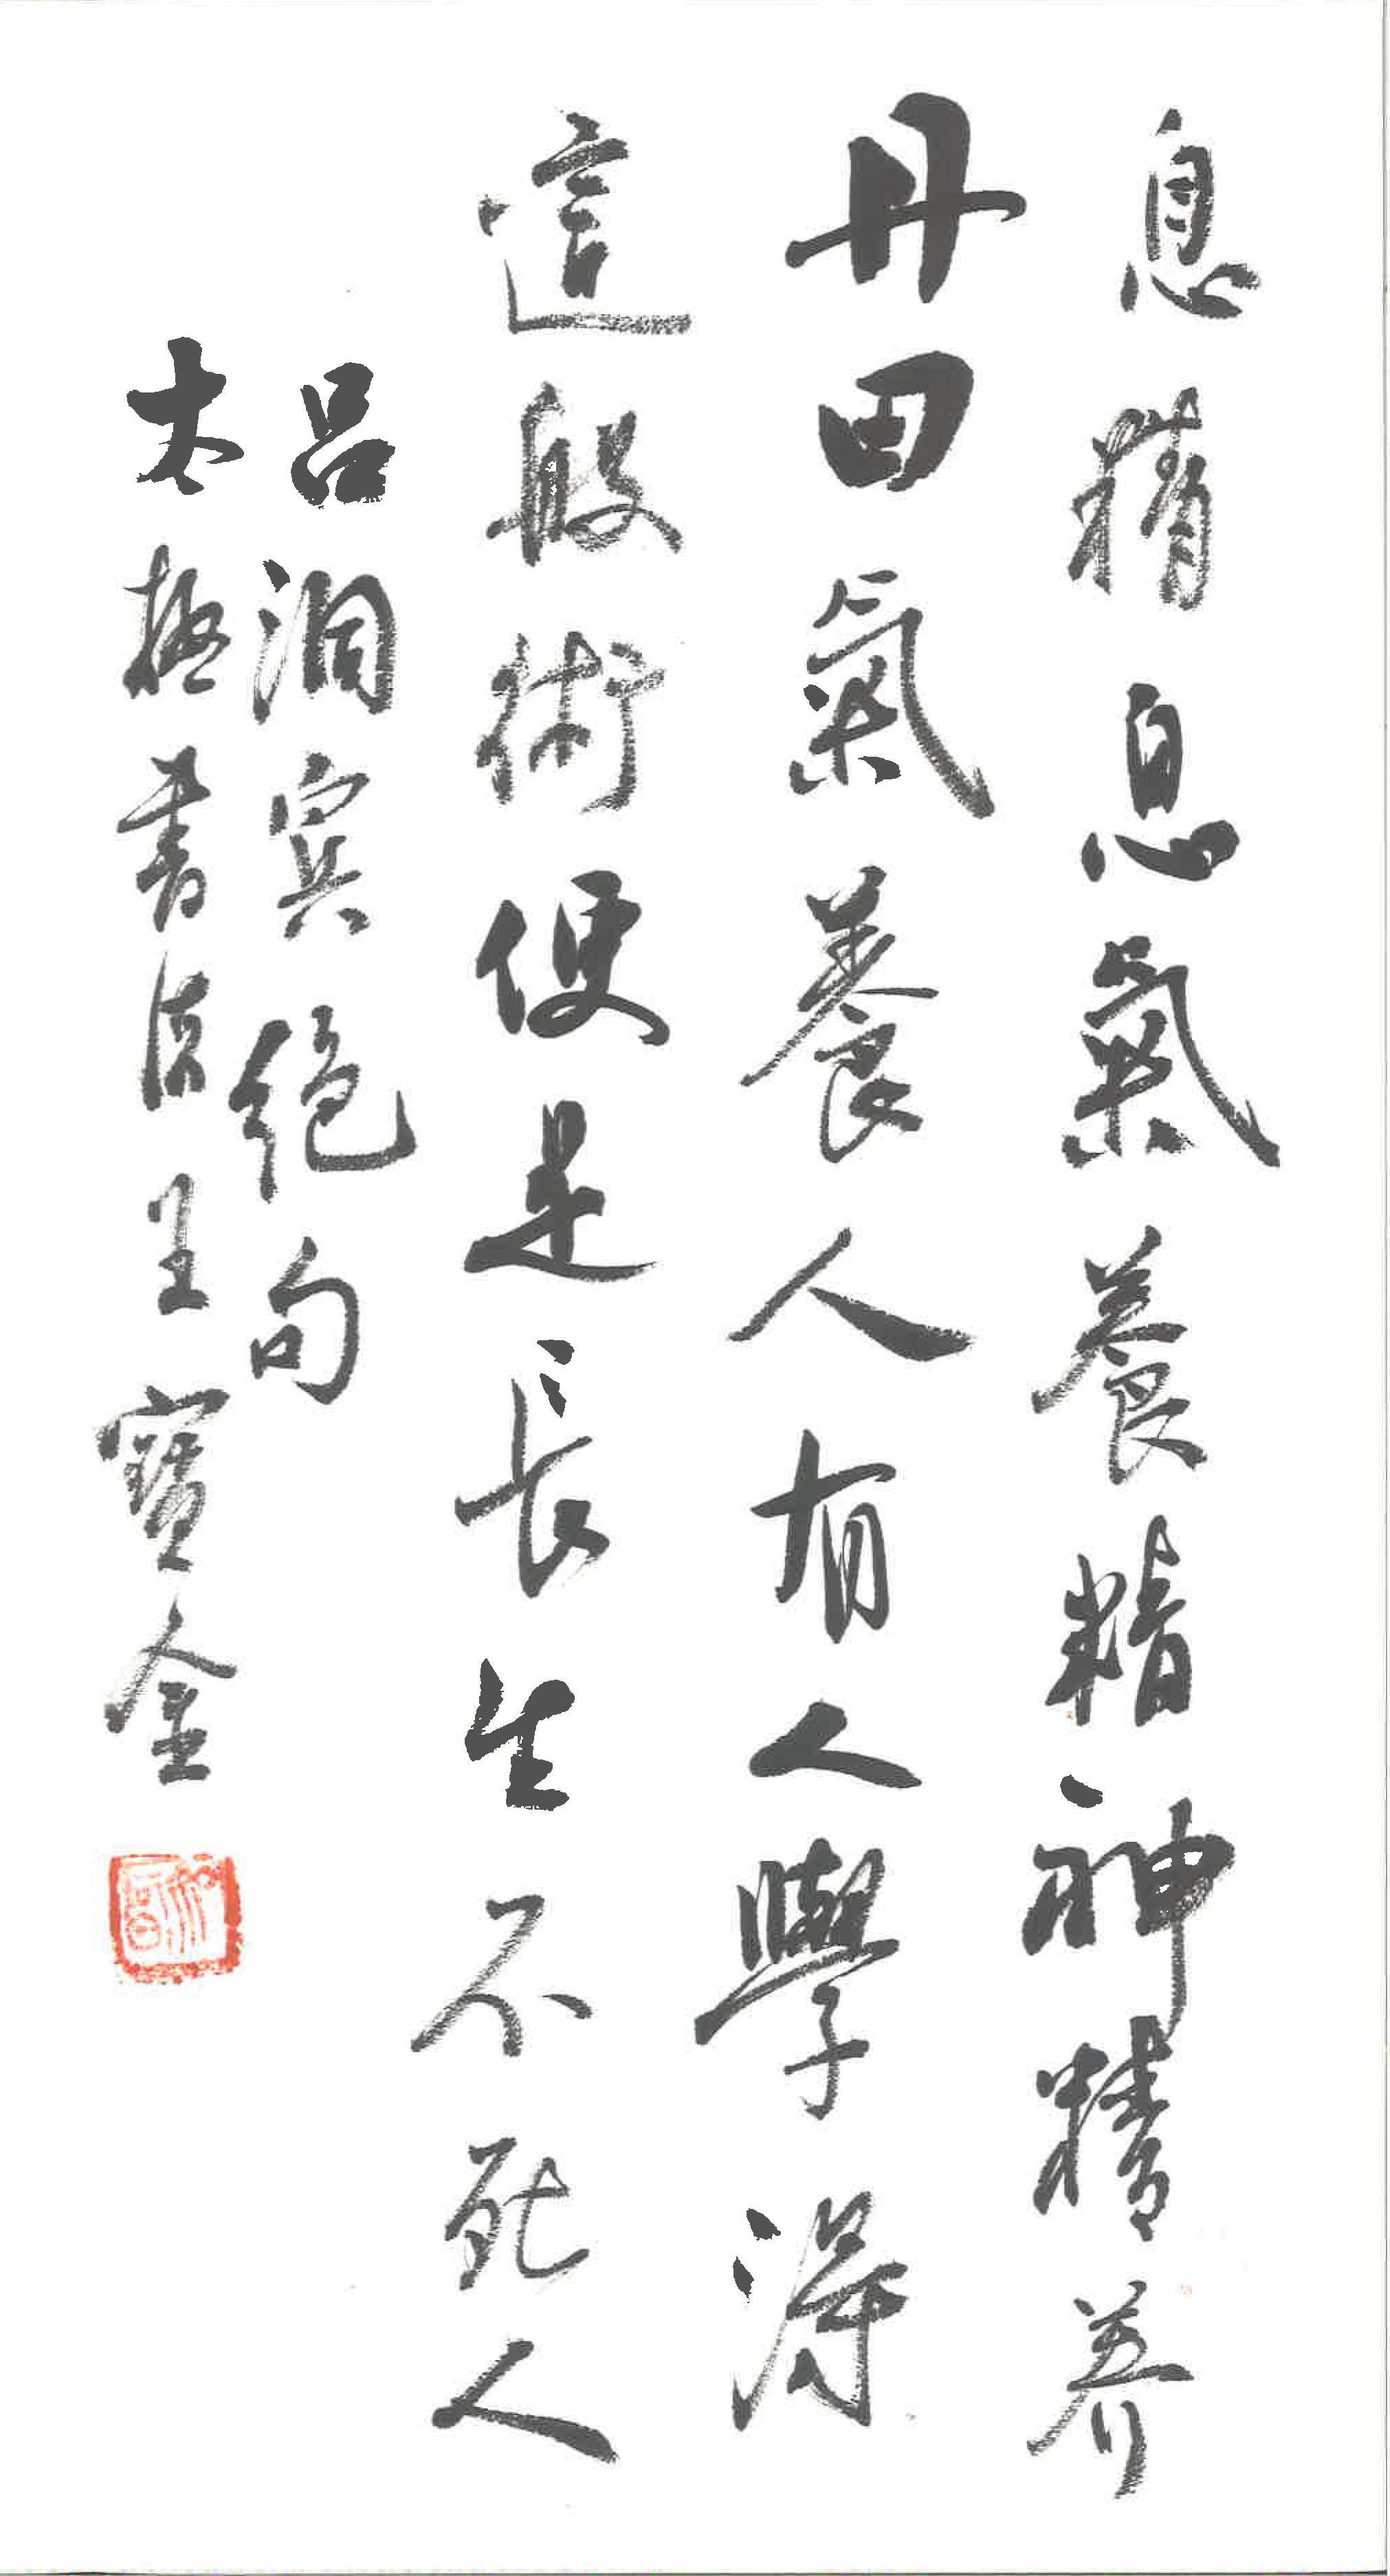 息精息氣養精神精养
丹田氣養人有人學得
這般術便是長生不死人
吕洞宾绝句
太極書法王寶金